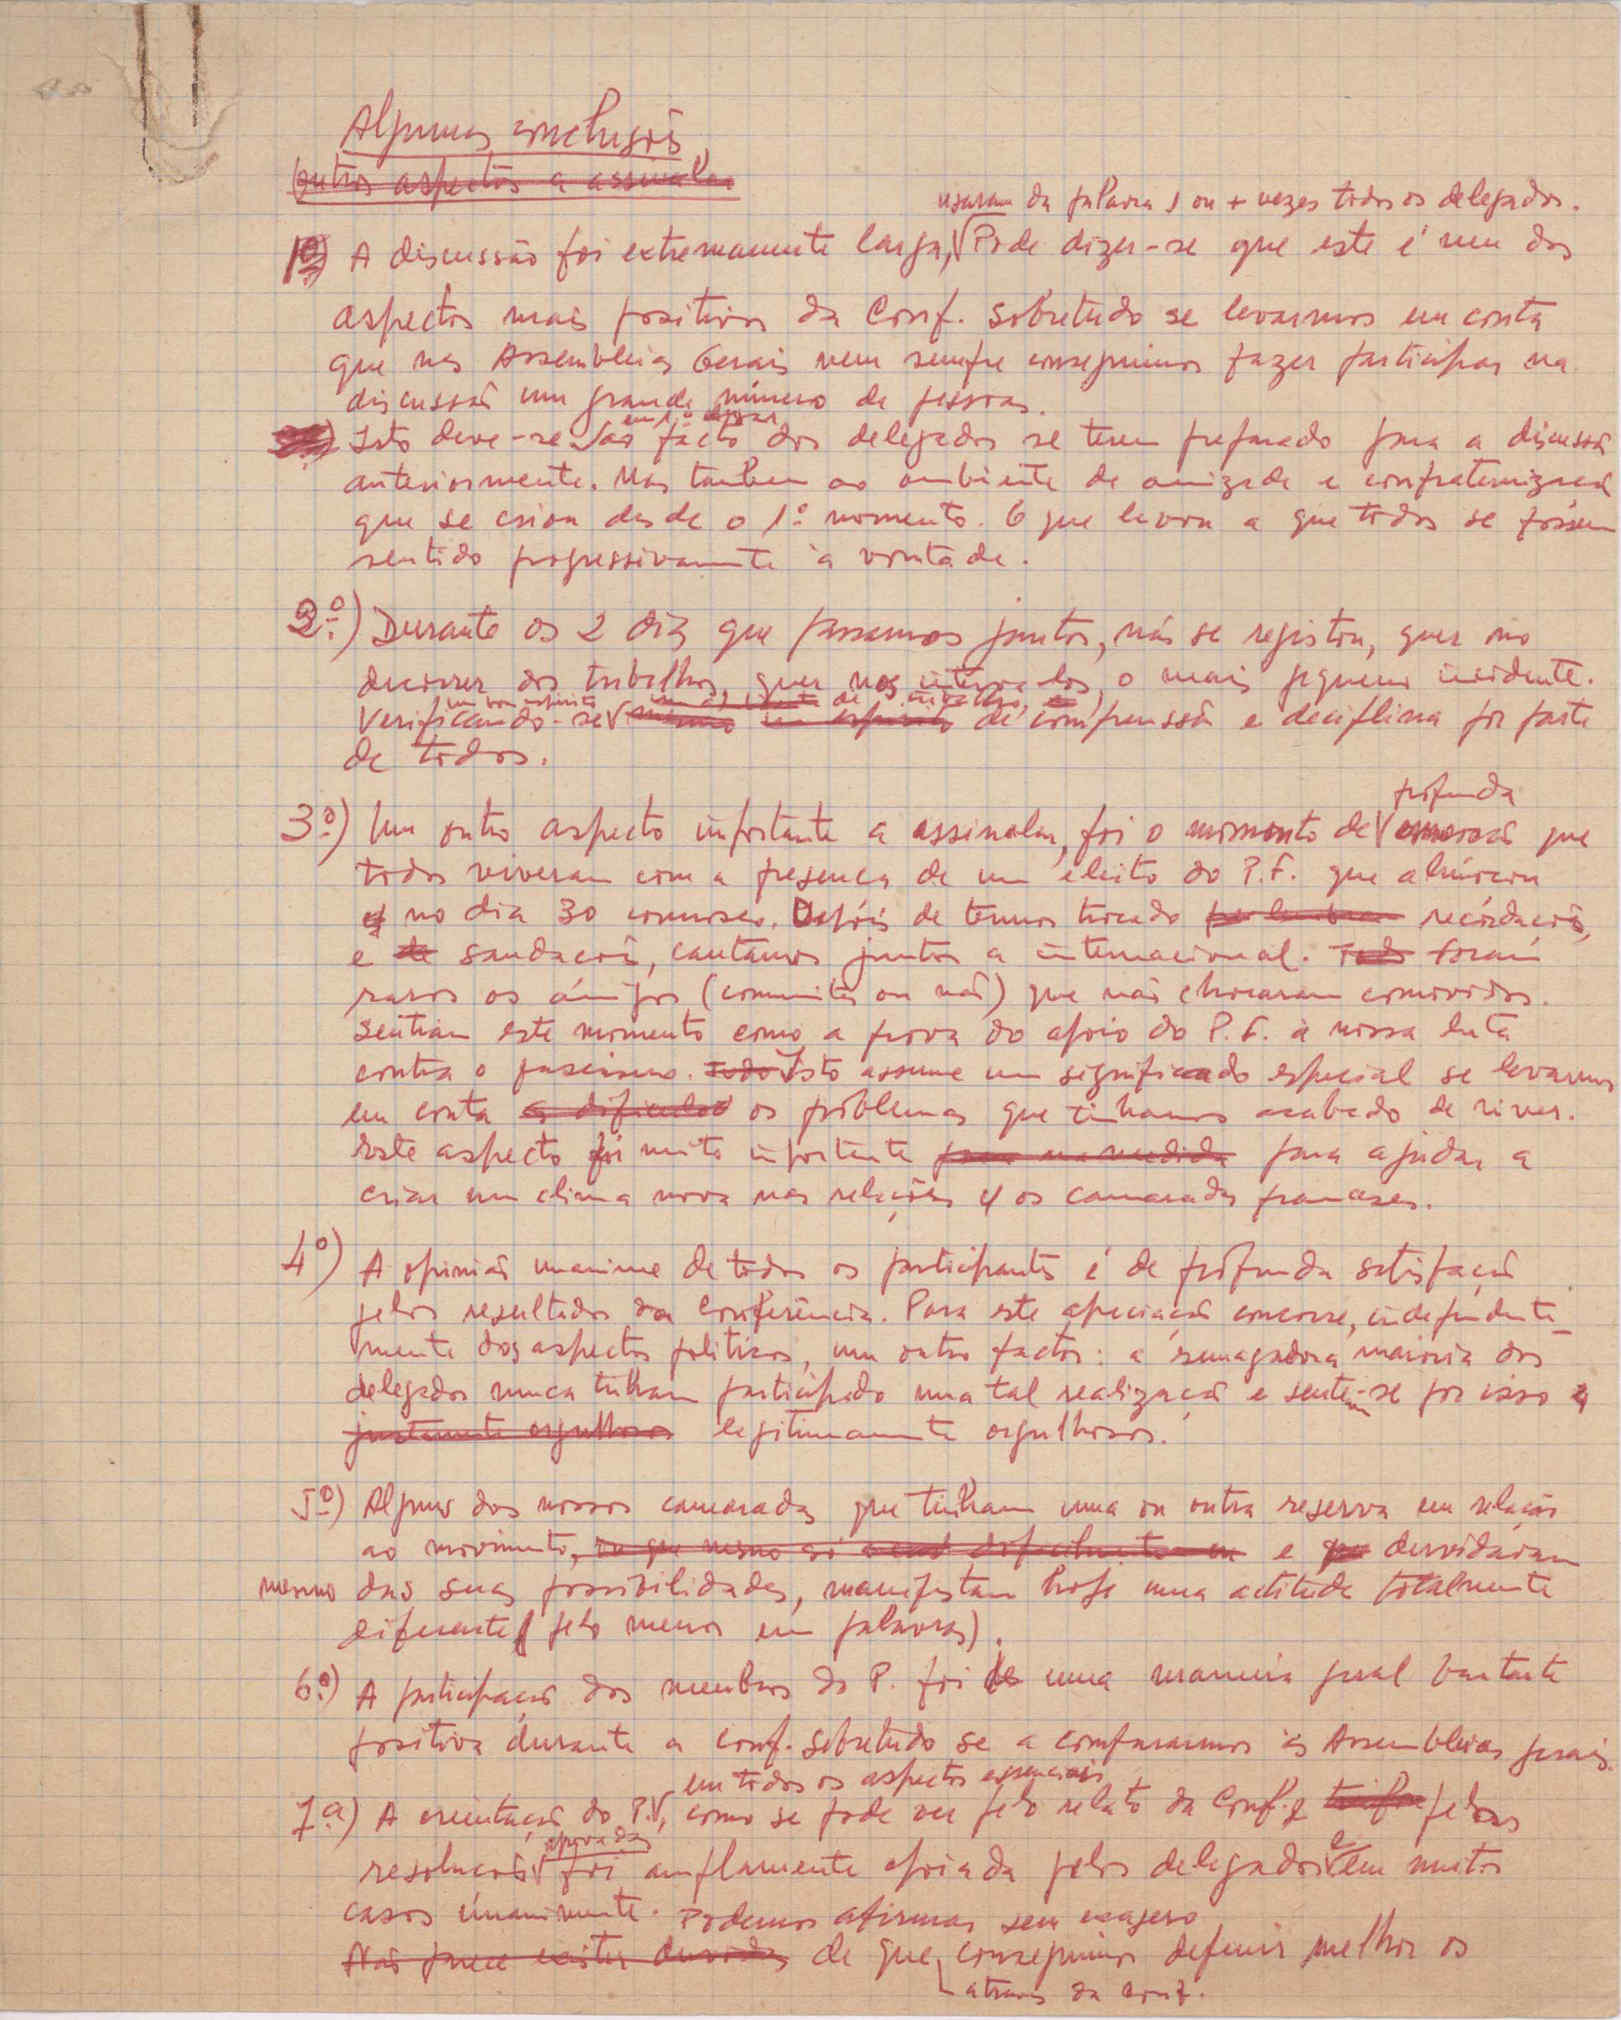 Algumas conclusões
Outros aspectos a assinalar
usaram da palavra 1 ou + vezes todos os delegados.
1º) A discussão foi extremamente larga, Pode dizer-se que este é um dos
aspectos mais positivos da Conf. sobretudo se levarmos em conta
que nas Assembleias Gerais nem sempre conseguimos fazer participar na
discussão um grande número de pessoas.
em 1º lugar
Isto deve-se ao facto dos delegados se terem preparado para a discussão
anteriormente. Mas tambem ao ambiente de amizade e confraternização
que se criou desde o 1º momento. O que levou a que todos se fossem
sentido progressivamente à vontade.
2º) Durante os 2 dias que passamos juntos, não se registou, quer no
decorrer dos trabalhos, quer nos intervalos, o mais pequeno incidente.
um bom espirito de trabalho,
Verificando-se um espirito de compreensão e deciplina por parte
de todos.
profunda
3º) Um outro aspecto importante a assinalar, foi o momento de emoção que
todos viveram com a presença de um eleito do P.F. que almoçou
no dia 30 conosco. Depois de termos trocado recordações,
e de saudações, cantámos juntos a internacional. Todos foram
raros os ámigos (comunistas ou não) que não choraram comovidos.
sentiam este momento como a prova do apoio do P.F. à nossa luta
contra o fascismo. Todo Isto assume um significado especial se levarmos
em conta as dificuldad os problemas que tinhamos acabado de viver.
Este aspecto foi muito importante para na medida para ajudar a
criar um clima novo nas relações c/ os camaradas franceses.
4º) A opinião unanime de todos os participantes é de profunda satisfação
pelos resultados da Conferência. Para este apreciação concorre, independente-
mente dos aspectos politicos, um outro factor: a esmagadora maioria dos
delegados nunca tinham participado numa tal realização e sentem-se por isso
justamente orgulhosos legitimamente orgulhosos.
5º) Alguns dos nossos camaradas que tinham uma ou outra reserva em relação
ao movimento, ou que mesmo dificilmente e que duvidavam
mesmo das suas possibilidades, manifestam hoje uma actitude totalmente
diferente (pelo menos em palavras).
6º) A participação dos membros do P. foi de uma maneira geral bastante
positiva durante a conf. sobretudo se a compararmos às Assembleias gerais.
em todos os aspectos essenciais
7º) A orientação do P., como se pode ver pelo relato da Conf. e pelas
aprovadas e
resoluções foi amplamente apoiada pelos delegados em muitos
casos únanimente. Podemos afirmar sem exagero
Não parece existir duvidas de que conseguimos definir melhor os
através da conf.